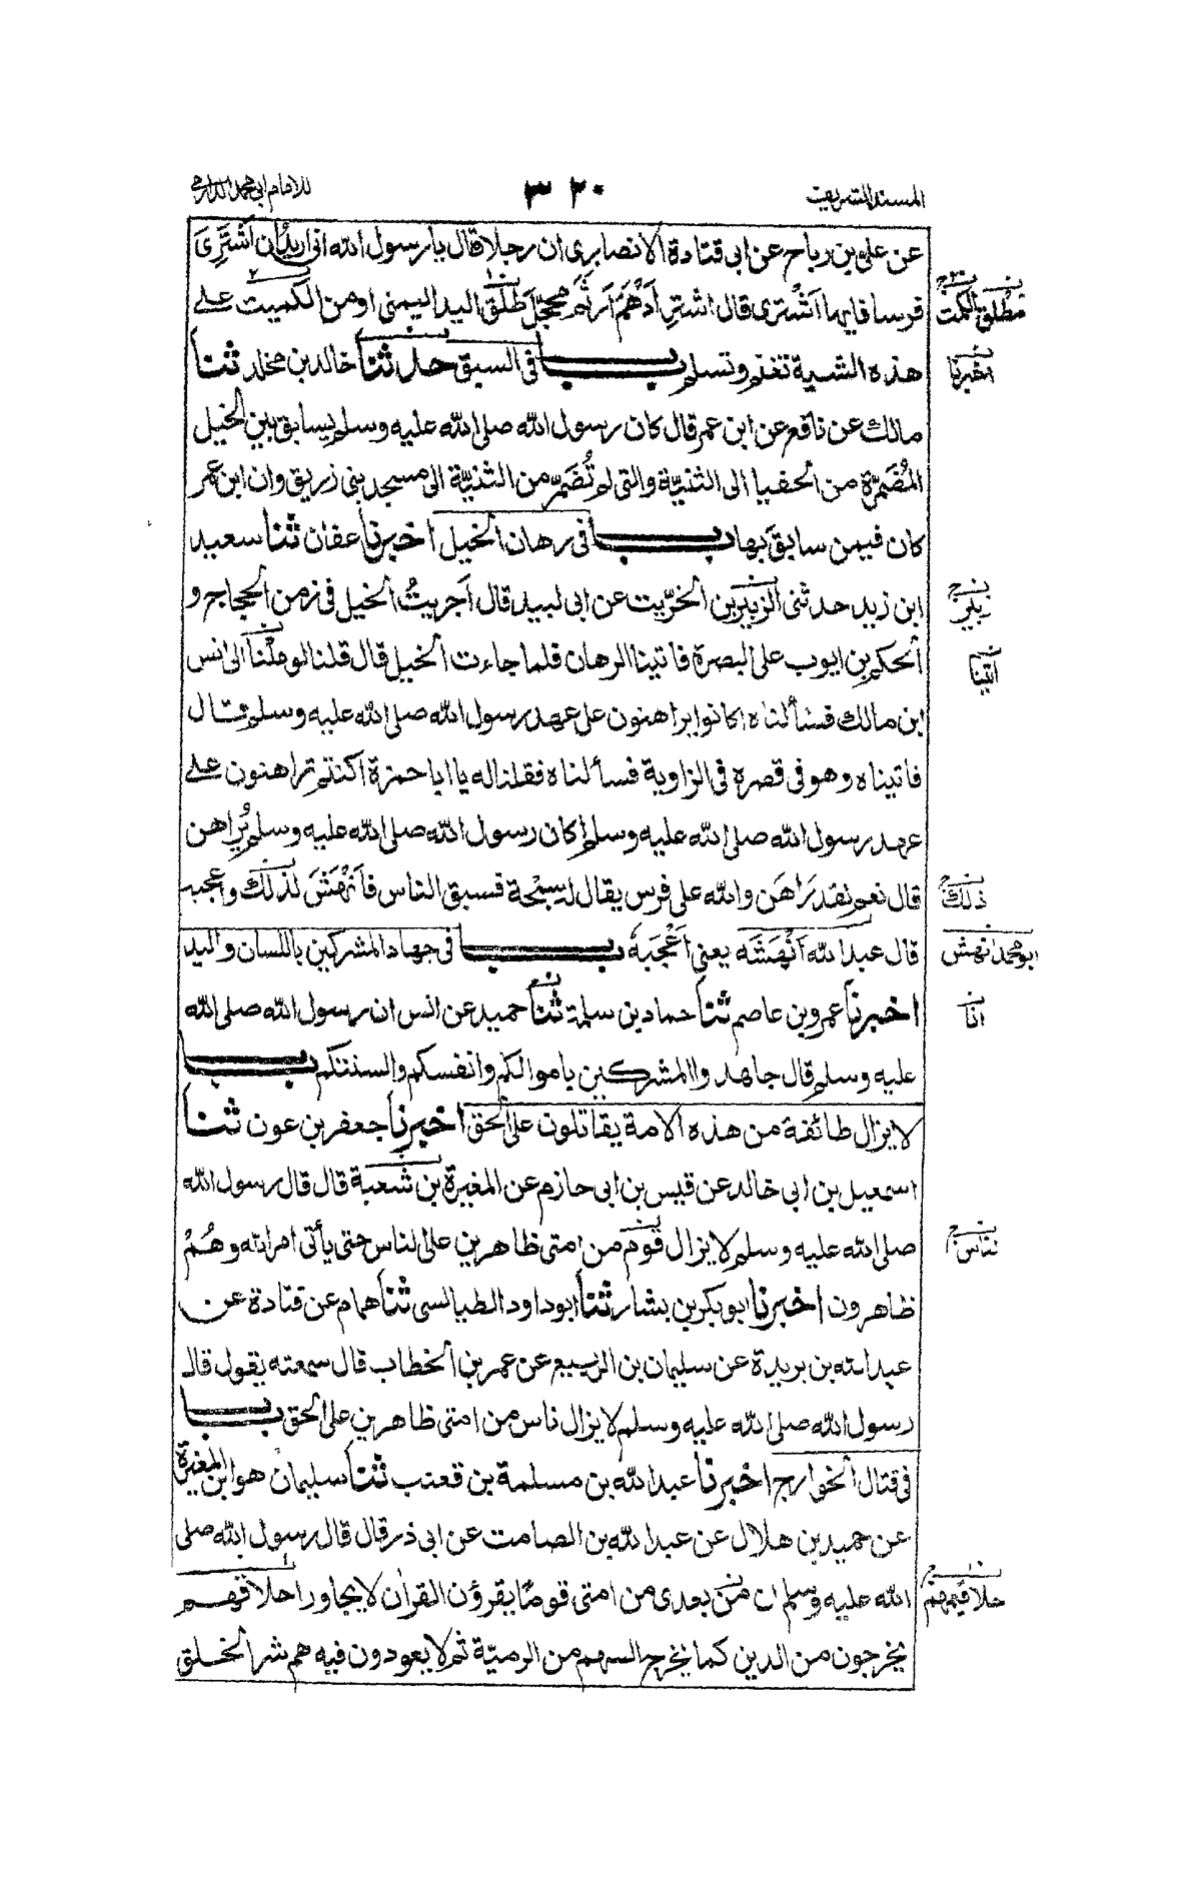 المسند الشريف
٣٢٠
للامام ابى محمد الدارمى
عن على بن رباح عن ابى قتادة الانصارى ان رجلا قال يا رسول الله انى اريد ان اَشْتَرِىَ
فرسا فايها اَشْترى قال اشترِ اَدْهَمَ اَرثَمَ محجّل طَلْقَ اليد اليمنى او من الكميت على
هذه الشية تغنم وتسلم باب فى السبق حدثنا خالد بن مخلد ثنا
مالك عن نافع عن ابن عمر قال كان رسول الله صلى الله عليه وسلم يسابق بين الخيل
المُضَمَّرَة من الحفيا الى الثنيّة والتى لم تُضَمّر من الثنيّة الى مسجد بنى زريق وان ابن عمر
كان فيمن سابق بها باب فى رهان الخيل اخبرنا عفان ثنا سعيد
ابن زيد حدثنى الزبير بن الخرّيت عن ابى لبيد قال اَجريتُ الخيل فى زمن الحجاج و
الحكم بن ايوب على البصرة فاتينا الرهان فلما جاءت الخيل قال قلنا لو مِلْنا الى انس
ابن مالك فسألناه اكانوا يراهنون على عهد رسول الله صلى الله عليه وسلم قال
فاتيناه وهو فى قصره فى الزاوية فسألناه فقلنا له يا ابا حمزة اكنتم تراهنون على
عهد رسول الله صلى الله عليه وسلم اكان رسول الله صلى الله عليه وسلم يُراهن
قال نعم لقد رَاهَن والله على فرس يقال له سبْحة فسبق الناس فاَنْهَشَ لذلك واعجبه
قال عبد الله اَنْهَشَه يعنى اَعْجَبَهٗ باب فى جهاد المشركين باللسان واليد
اخبرنا عمرو بن عاصم ثنا حماد بن سلمة ثنا حميد عن انس ان رسول الله صلى الله
عليه وسلم قال جاهدوا المشركين باموالكم وانفسكم والسنتكم باب
لا يزال طائفة من هذه الامة يقاتلون على الحق اخبرنا جعفر بن عون ثنا
اسمعيل بن ابى خالد عن قيس بن ابى حازم عن المغيرة بن شعبة قال قال رسول الله
صلى الله عليه وسلم لا يزال قوم من امتى ظاهرين على الناس حتى يأتى امر الله وهُمْ
ظاهرون اخبرنا ابو بكر بن بشار ثنا ابو داود الطيالسى ثنا همام عن قتادة عن
عبد الله بن بريدة عن سليمان بن الربيع عن عمر بن الخطاب قال سمعته يقول قال
رسول الله صلى الله عليه وسلم لا يزال ناس من امتى ظاهرين على الحق باب
فى قتال الخوارج اخبرنا عبد الله بن مسلمة بن قعنب ثنا سليمان هو ابن المغيرة
عن حميد بن هلال عن عبد الله بن الصامت عن ابى ذر قال قال رسول الله صلى
الله عليه وسلم ان من بعدى من امتى قوما يقرؤن القران لا يجاوز احلاقهم
يخرجون من الدين كما يخرج السهم من الرميّة ثم لا يعودون فيه هم شر الخلق
اخبرنا
اتينا
ذلك
ابو محمد انهش
انا
حلاقيمهم